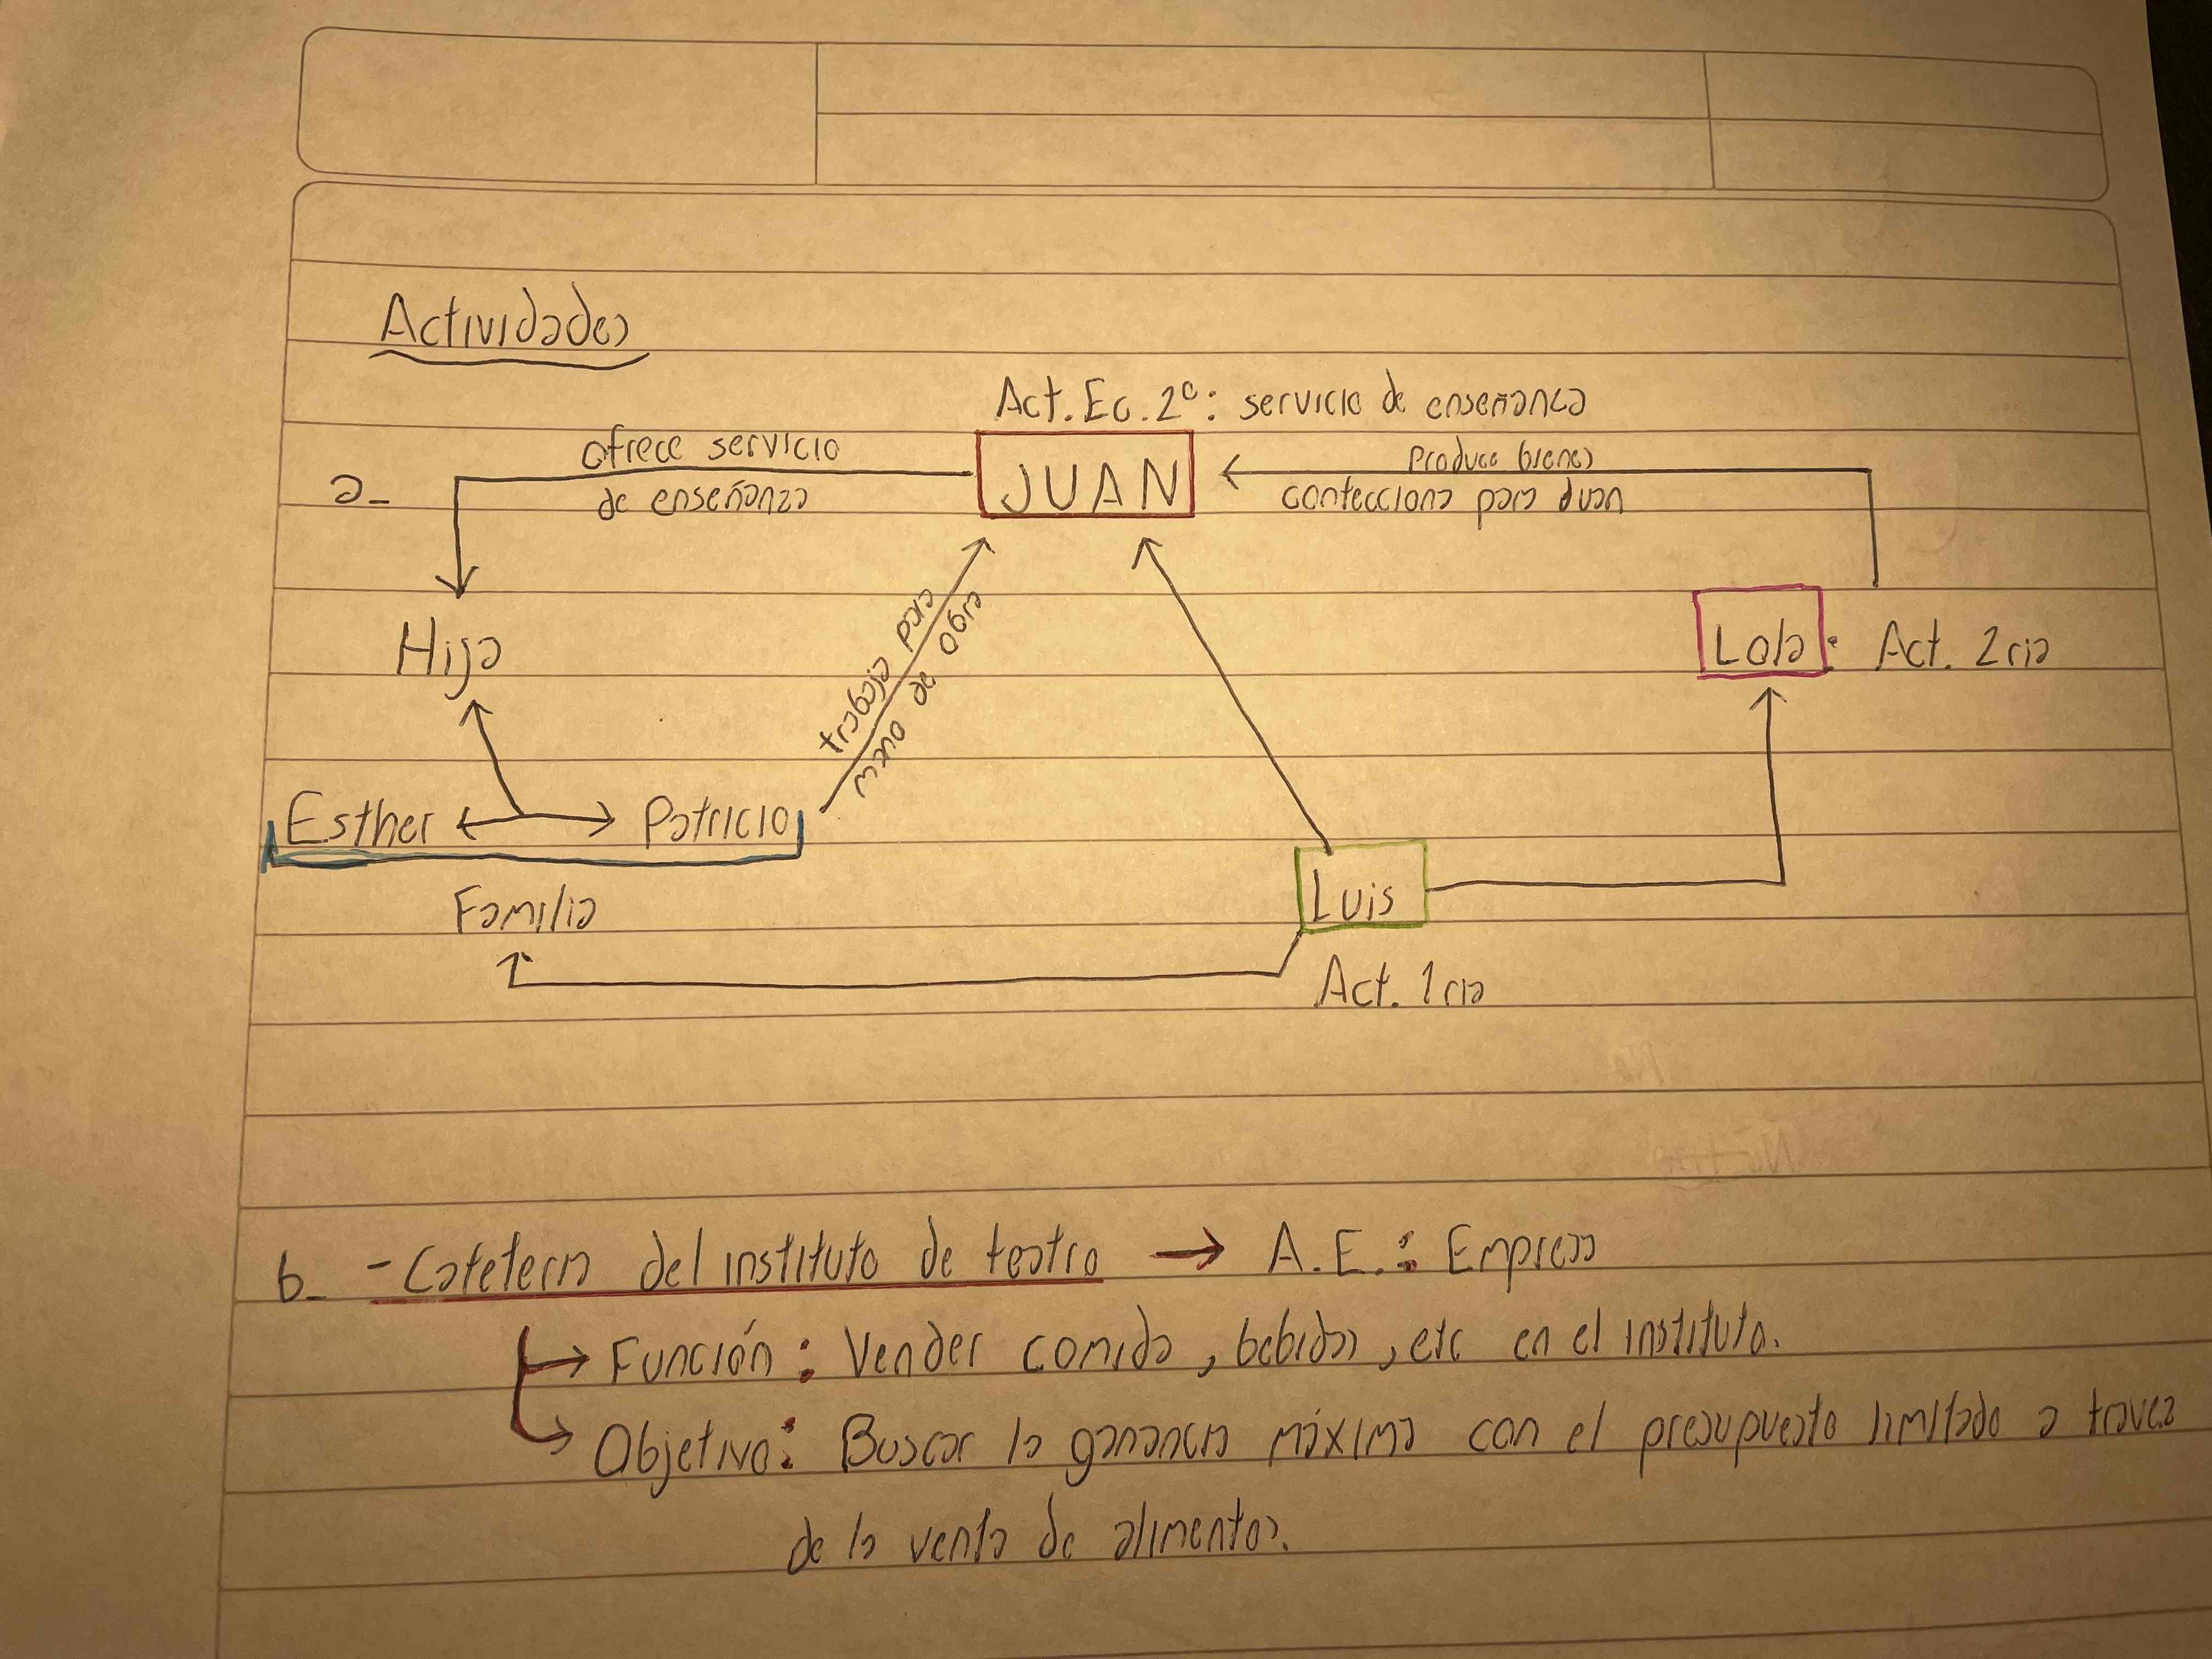 Actividades
Act. Ec. 2º: servicio de enseñanza
ofrece servicio
de enseñanza
a-
JUAN
Produce bienes
confecciona para Juan
Hija
trabaja para
mano de obra
Lola: Act. 2ria
Esther
Patricio
Familia
Luis
Act. 1ria
b- - Cafetería del instituto de teatro → A.E.: Empresa
→ Función: Vender comida, bebidas, etc en el instituto.
→ Objetivo: Buscar la ganancia máxima con el presupuesto limitado a traves
de la venta de alimentos.